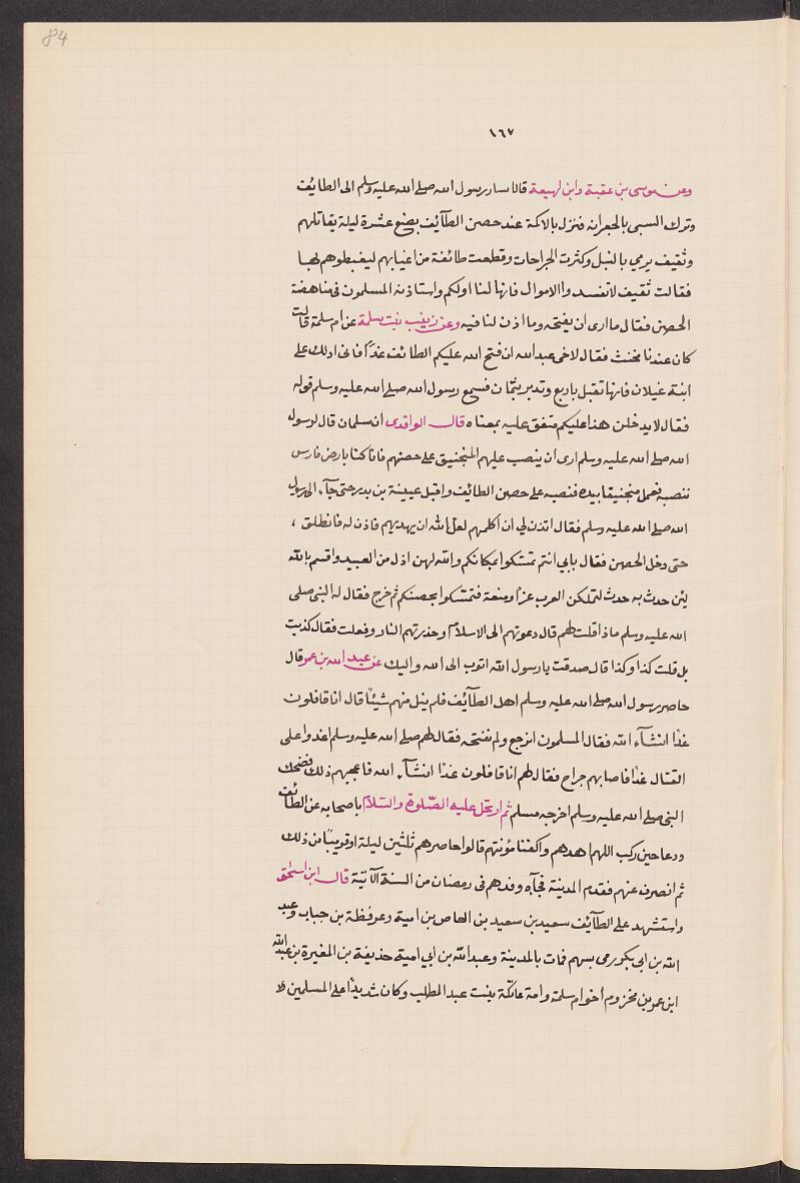 84
١٦٧
وعن موسى بن عقبة وابن لهيعة قالا سار رسول الله صلى الله عليه وسلم الى الطائف
وترك السبي بالجعرانه فنزل بالاكمة عند حصن الطآئف بضع عشرة ليلة يقاتلهم
وثقيف يرمي بالنبل وكثرت الجراحات وقطعت طائفة من اعنابهم ليغيظوهم بها
فقالت ثقيف لا تفسدوا الاموال فانها لنا او لكم واستاذنه المسلمون في مناهضة
الحصن فقال ما ارى ان يفتحه وما اذن لنا فيه وعن زينب بنت سلمة عن ام سلمة قالت
كان عندنا مخنث فقال لاخي عبد الله ان فتح الله عليكم الطائف غدًا فانى ادلك على
ابنة غيلان فانها تقبل باربع وتدبر بثمان فسمع رسول الله صلى الله عليه وسلم قوله
فقال لا يدخلن هذا عليكم متفق عليه بمعناه قال الواقدى ان سلمان قال لرسول
الله صلى الله عليه وسلم ارى ان ينصب عليهم المنجنيق على حصنهم فانا كنا بارض فارس
ننصبه فعمل منجنيقا بيده فنصبه على حصن الطائف واقبل عيينة بن بدر حتى جآء الى رسول
الله صلى الله عليه وسلم فقال ائذن لي ان اكلمهم لعل الله ان يهديهم فاذن له فانطلق ،
حتى دخل الحصن فقال بابي انتم تمسكوا بمكانكم والله لهن اذل من العبيد واقسم بالله
لئن حدث به حدث لتملكن العرب عزا ومنعة فتمسكوا بحصنكم ثم خرج فقال له النبى صلى
الله عليه وسلم ماذا قلت لهم قال دعوتهم الى الاسلام وحذرتهم النار وفعلت فقال كذبت
بل قلت كذا وكذا قال صدقت يا رسول الله اتوب الى الله واليك عن عبد الله بن عمر قال
حاصر رسول الله صلى الله عليه وسلم اهل الطآئف فلم ينل منهم شيئًا قال انا قافلون
غدًا انشآء الله فقال المسلمون انرجع ولم نفتحه فقال لهم صلى الله عليه وسلم اغدوا على
القتال غدًا فاصابهم جراح فقال لهم انا قافلون غدًا انشآء الله فاعجبهم ذلك فضحك
النبى صلى الله عليه وسلم اخرجه مسلم ثم ارتحل عليه الصّلوة والسّلام باصحابه عن الطائف
ودعا حين ركب اللهم اهدهم واكفنا مؤنتهم قالوا حاصرهم ثلثين ليلة او قريبًا من ذلك
ثم انصرف عنهم فقدم المدينة فجآءه وفدهم في رمضان من السنة الآتية قال ابن اسحق
واستشهد على الطآئف سعيد بن سعيد بن العاص بن امية وعرفظة بن جباب وعبد
الله بن ابى بكر رمى بسهم فمات بالمدينة وعبد الله بن ابي امية حذيفة بن المغيرة بن عبد الله
ابن عمر بن مخزوم اخوام سلمة وامة عاتكة بنت عبد المطلب وكان شديدًا على المسلمين